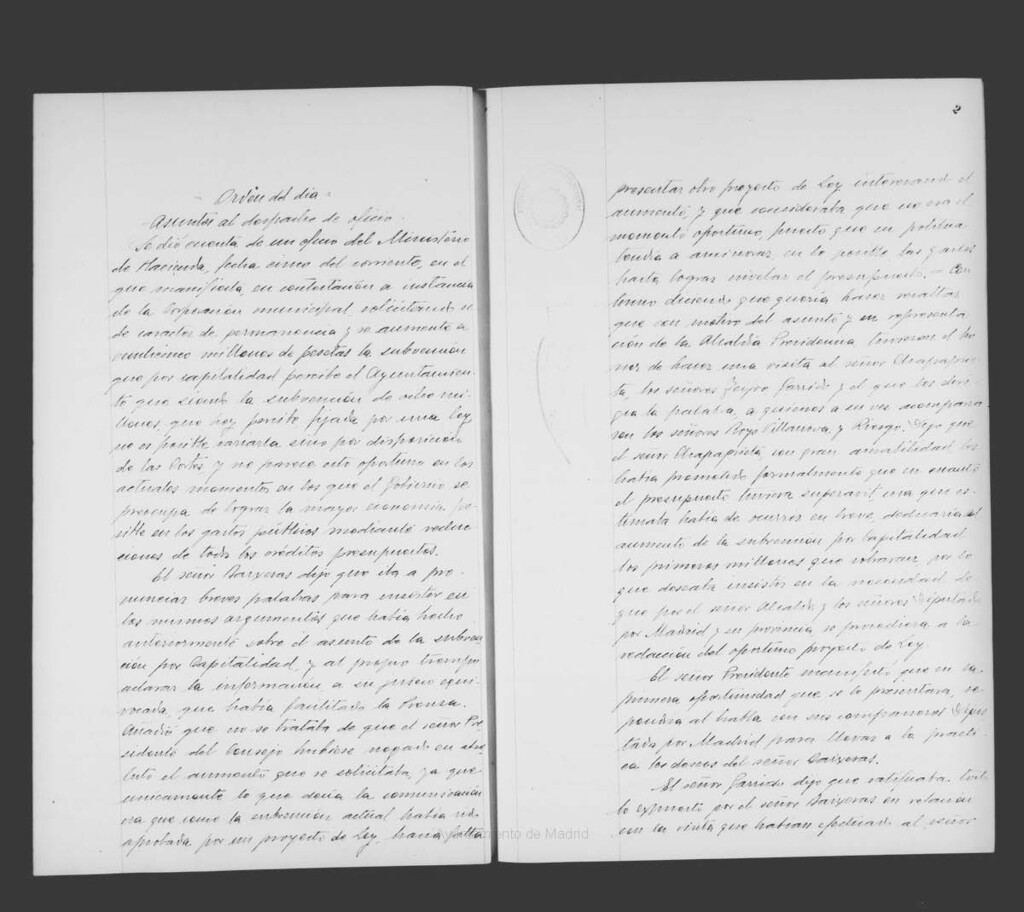 Orden del dia
Asuntos al despacho de oficio.
Se dió cuenta de un oficio del Ministerio
de Hacienda, fecha cinco del corriente, en el
que manifiesta, en contestación a instancia
de la Corporación municipal solicitando se
de carácter de permanencia y se aumente a
veinticinco millones de pesetas la subvención
que por capitalidad percibe el Ayuntamien-
to que siendo la subvención de ocho mi-
llones, que hoy percibe, fijada por una ley
no es posible variarla sino por disposición
de las Cortes y no parece esto oportuno en los
actuales momentos en los que el Gobierno se
preocupa de lograr la mayor economia po-
sible en los gastos públicos mediante reduc-
ciones de todos los créditos presupuestos.
El señor Barxeras dijo que iba a pro-
nunciar breves palabras para insistir en
los mismos argumentos que habia hecho
anteriormente sobre el asunto de la subven-
ción por Capitalidad, y al propio tiempo
aclarar la información a su juicio equi-
vocada, que habia facilitado la Prensa.
Añadió que no se trataba de que el señor Pre-
sidente del Consejo hubiese negado en abso-
luto el aumento que se solicitaba, ya que
unicamente lo que decía la comunicación
era que como la subvención actual habia sido
aprobada por un proyecto de Ley, hacía falta
Ayuntamiento de Madrid
2
presentar otro proyecto de Ley interesand el
aumento, y que consideraba que no era el
momento oportuno, puesto que su política
tendía a aminorar, en lo posible, los gastos
hasta lograr nivelar el presupuesto. — Con
tinuó diciendo que quería hacer resaltar
que con motivo del asunto y en representa
ción de la Alcaldía Presidencia tuvieron el ho
nor de hacer una visita al señor Chapaprie
ta, los señores Garrido y el que les diri-
gía la palabra, a quienes a su vez acompaña
ron los señores Royo Villanova, y Riesgo. Dijo que
el señor Chapaprieta, con gran amabilidad les
habia prometido formalmente que en cuanto
el presupuesto tuviera superavit cosa que es-
timaba habia de ocurrir en breve, dedicaría al
aumento de la subvención por Capitalidad
los primeros millones que sobraran, por lo
que deseaba insistir en la necesidad de
que por el señor Alcalde y los señores Diputados
por Madrid y su provincia se procediera a la
redacción del oportuno proyecto de Ley.
El señor Presidente manifestó que en la
primera oportunidad que se le presentara, se
pondria al habla con sus compañeros Dipu
tados por Madrid para llevar a la práctica
los deseos del señor Barxeras.
El señor Garrido dijo que ratificaba todo
lo expuesto por el señor Barxeras en relación
con la visita que habian efectuado al señor